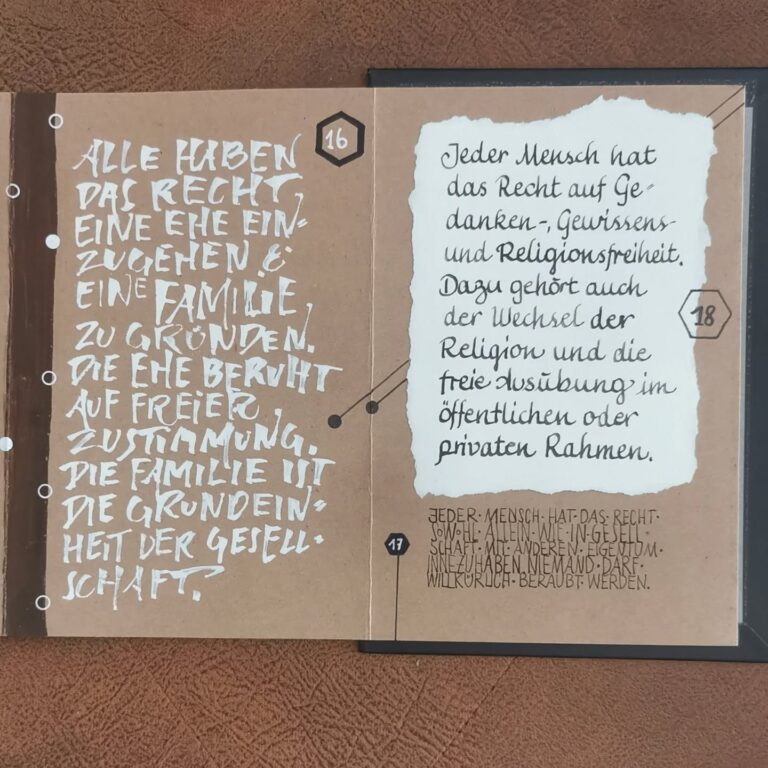 16
ALLE HABEN
DAS RECHT,
EINE EHE EIN=
ZUGEHEN &
EINE FAMILIE
ZU GRÜNDEN.
DIE EHE BERUHT
AUF FREIER
ZUSTIMMUNG.
DIE FAMILIE IST
DIE GRUNDEIN=
HEIT DER GESELL-
SCHAFT.
Jeder Mensch hat
das Recht auf Ge-
danken-, Gewissens-
und Religionsfreiheit.
Dazu gehört auch
der Wechsel der
Religion und die
freie Ausübung im
öffentlichen oder
privaten Rahmen.
18
17
JEDER·MENSCH·HAT·DAS·RECHT·
SOWOHL·ALLEIN·WIE·IN·GESELL
SCHAFT·MIT·ANDEREN·EIGENTUM·
INNEZUHABEN·NIEMAND·DARF·
WILLKÜRLICH·BERAUBT·WERDEN.